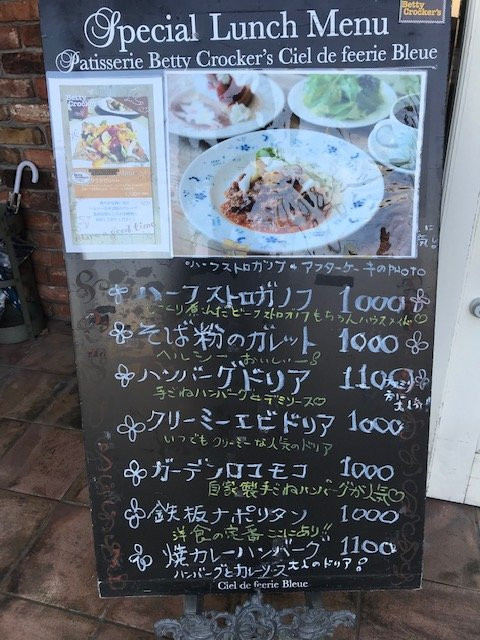 Special Lunch Menu
Betty Crocker's
Patisserie Betty Crocker's Ciel de feerie Bleue
Betty Crocker's
Menu
a good time
ハーフストロガノフ 1000
そば粉のガレット 1000
ヘルシー おいしいー!
ハンバーグドリア 1100
手ごねハンバーグとデミソース♡
クリーミーエビドリア 1000
いつでもクリーミーな人気のドリア
ガーデンロコモコ 1000
自家製手ごねハンバーグが人気♡
鉄板ナポリタン 1000
洋食の定番 ここにあり!!
焼カレーハンバーグ 1100
ハンバーグとカレーソース 大人のドリア!
Ciel de feerie Bleue